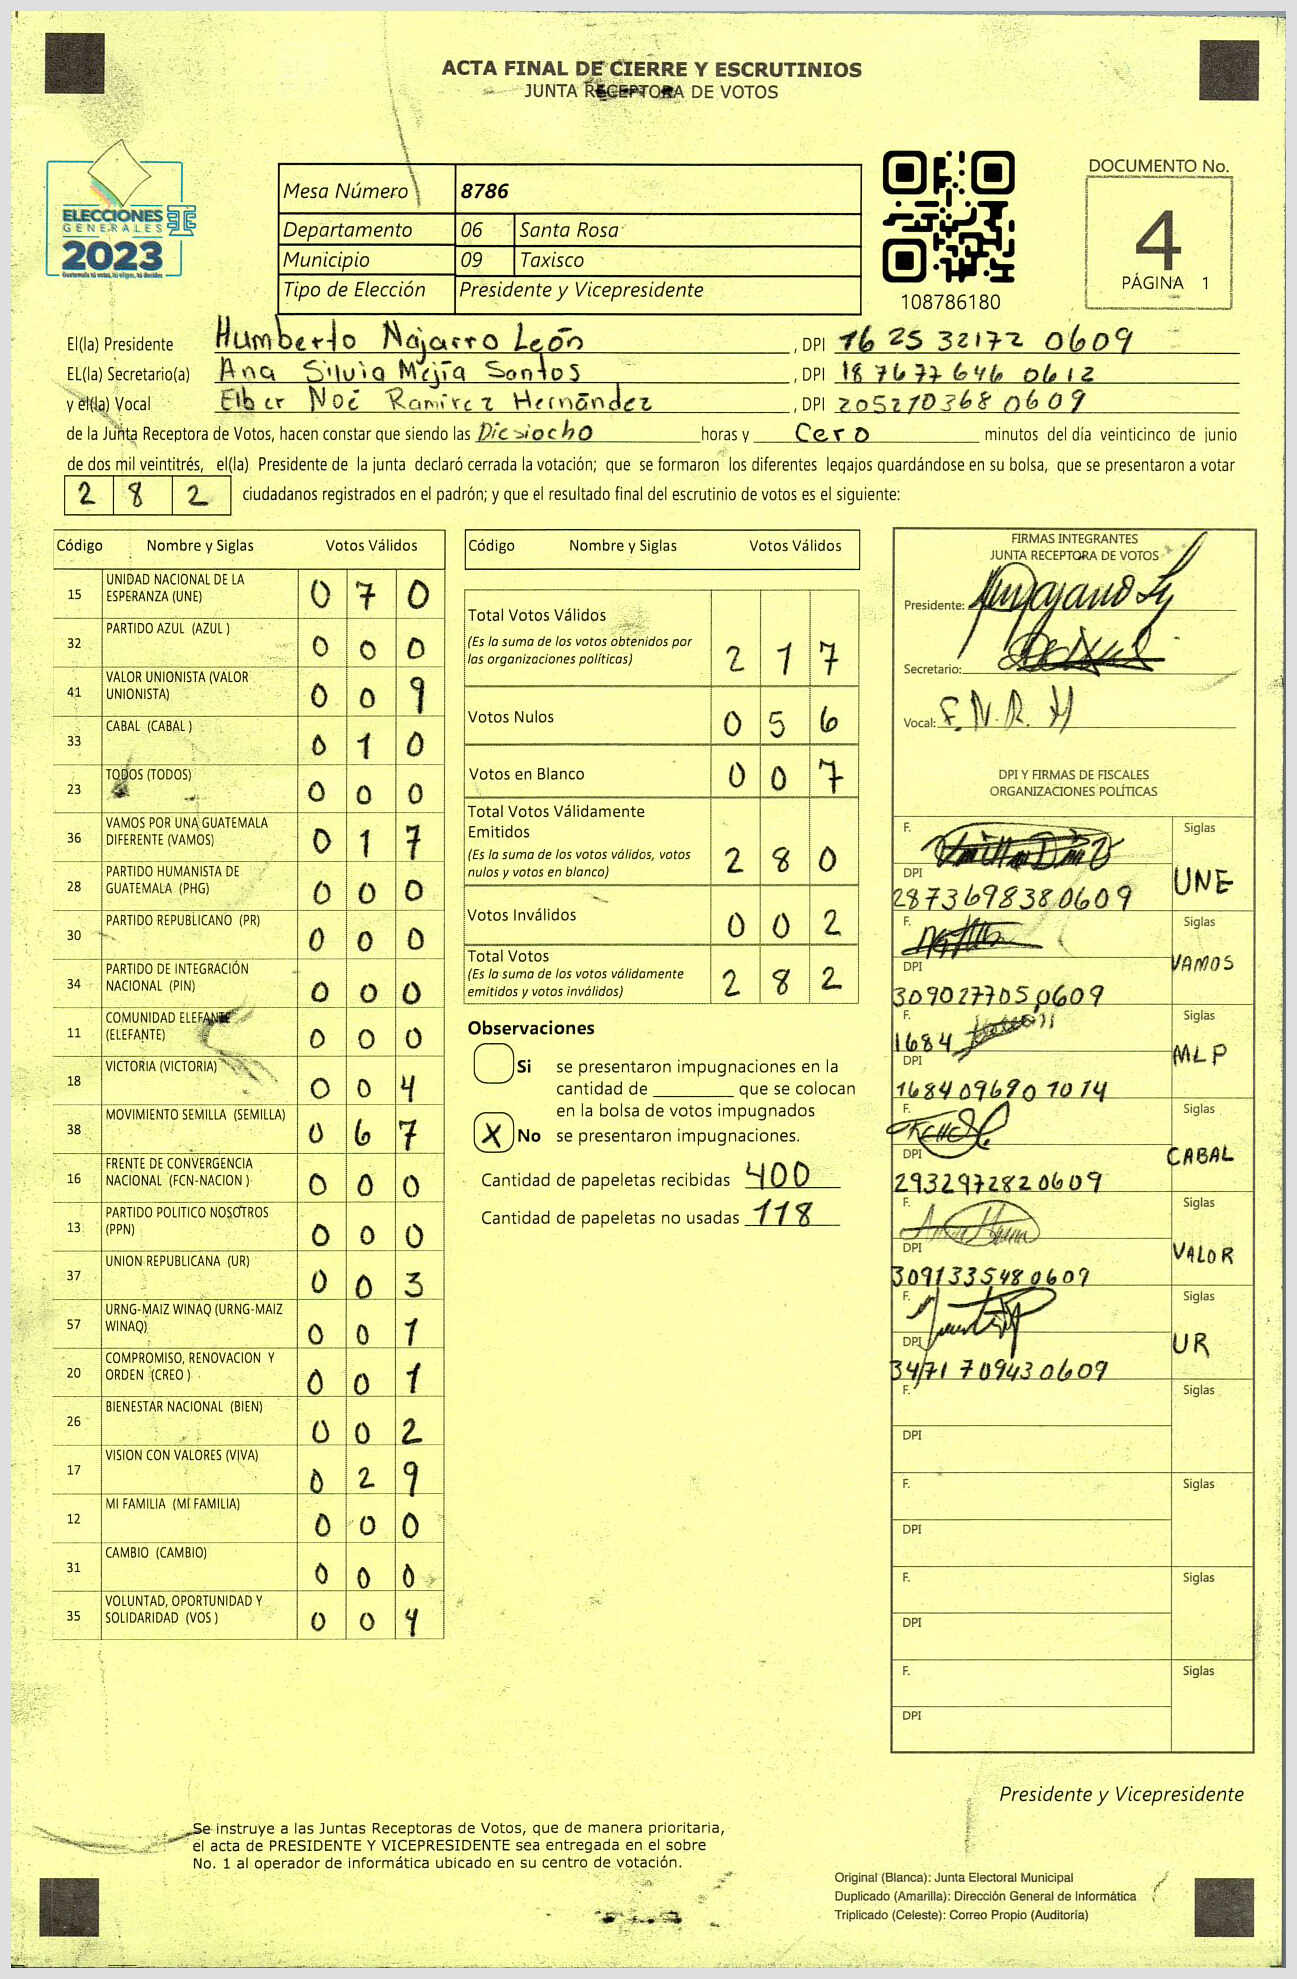 ACTA FINAL DE CIERRE Y ESCRUTINIOS
JUNTA RECEPTORA DE VOTOS
ELECCIONES
GENERALES
2023
Guatemala tú votas, tú eliges, tú decides
Mesa Número 8786
Departamento 06 Santa Rosa
Municipio 09 Taxisco
Tipo de Elección Presidente y Vicepresidente
108786180
DOCUMENTO No.
4
PÁGINA 1
El(la) Presidente Humberto Najarro León, DPI 16 25 32172 0609
EL(la) Secretario(a) Ana Silvia Mejía Santos, DPI 18 7677646 0612
y el(la) Vocal Elber Noé Ramirez Hernández, DPI 205270368 0609
de la Junta Receptora de Votos, hacen constar que siendo las Diesiocho horas y Cero minutos del día veinticinco de junio
de dos mil veintitrés, el(la) Presidente de la junta declaró cerrada la votación; que se formaron los diferentes legajos guardándose en su bolsa, que se presentaron a votar
2 8 2 ciudadanos registrados en el padrón; y que el resultado final del escrutinio de votos es el siguiente:
Código Nombre y Siglas Votos Válidos
15 UNIDAD NACIONAL DE LA ESPERANZA (UNE) 0 7 0
32 PARTIDO AZUL (AZUL ) 0 0 0
41 VALOR UNIONISTA (VALOR UNIONISTA) 0 0 9
33 CABAL (CABAL ) 0 1 0
23 TODOS (TODOS) 0 0 0
36 VAMOS POR UNA GUATEMALA DIFERENTE (VAMOS) 0 1 7
28 PARTIDO HUMANISTA DE GUATEMALA (PHG) 0 0 0
30 PARTIDO REPUBLICANO (PR) 0 0 0
34 PARTIDO DE INTEGRACIÓN NACIONAL (PIN) 0 0 0
11 COMUNIDAD ELEFANTE (ELEFANTE) 0 0 0
18 VICTORIA (VICTORIA) 0 0 4
38 MOVIMIENTO SEMILLA (SEMILLA) 0 6 7
16 FRENTE DE CONVERGENCIA NACIONAL (FCN-NACION ) 0 0 0
13 PARTIDO POLITICO NOSOTROS (PPN) 0 0 0
37 UNION REPUBLICANA (UR) 0 0 3
57 URNG-MAIZ WINAQ (URNG-MAIZ WINAQ) 0 0 1
20 COMPROMISO, RENOVACION Y ORDEN (CREO ) 0 0 1
26 BIENESTAR NACIONAL (BIEN) 0 0 2
17 VISION CON VALORES (VIVA) 0 2 9
12 MI FAMILIA (MI FAMILIA) 0 0 0
31 CAMBIO (CAMBIO) 0 0 0
35 VOLUNTAD, OPORTUNIDAD Y SOLIDARIDAD (VOS ) 0 0 4
Código Nombre y Siglas Votos Válidos
Total Votos Válidos
(Es la suma de los votos obtenidos por
las organizaciones políticas) 2 1 7
Votos Nulos 0 5 6
Votos en Blanco 0 0 7
Total Votos Válidamente
Emitidos
(Es la suma de los votos válidos, votos
nulos y votos en blanco) 2 8 0
Votos Inválidos 0 0 2
Total Votos
(Es la suma de los votos válidamente
emitidos y votos inválidos) 2 8 2
Observaciones
Si se presentaron impugnaciones en la
cantidad de ________ que se colocan
en la bolsa de votos impugnados
X No se presentaron impugnaciones.
Cantidad de papeletas recibidas 400
Cantidad de papeletas no usadas 118
FIRMAS INTEGRANTES
JUNTA RECEPTORA DE VOTOS
Presidente:
Secretario:
Vocal: E.N.R.H
DPI Y FIRMAS DE FISCALES
ORGANIZACIONES POLÍTICAS
F. Siglas
DPI UNE
2873698380609
F. Siglas
DPI VAMOS
3090277050609
F. Siglas
1684
DPI MLP
1684096901014
F. Siglas
DPI CABAL
2932972820609
F. Siglas
DPI VALOR
3091335480609
F. Siglas
DPI UR
3471709430609
F. Siglas
DPI
F. Siglas
DPI
F. Siglas
DPI
F. Siglas
DPI
Presidente y Vicepresidente
Se instruye a las Juntas Receptoras de Votos, que de manera prioritaria,
el acta de PRESIDENTE Y VICEPRESIDENTE sea entregada en el sobre
No. 1 al operador de informática ubicado en su centro de votación.
Original (Blanca): Junta Electoral Municipal
Duplicado (Amarilla): Dirección General de Informática
Triplicado (Celeste): Correo Propio (Auditoría)